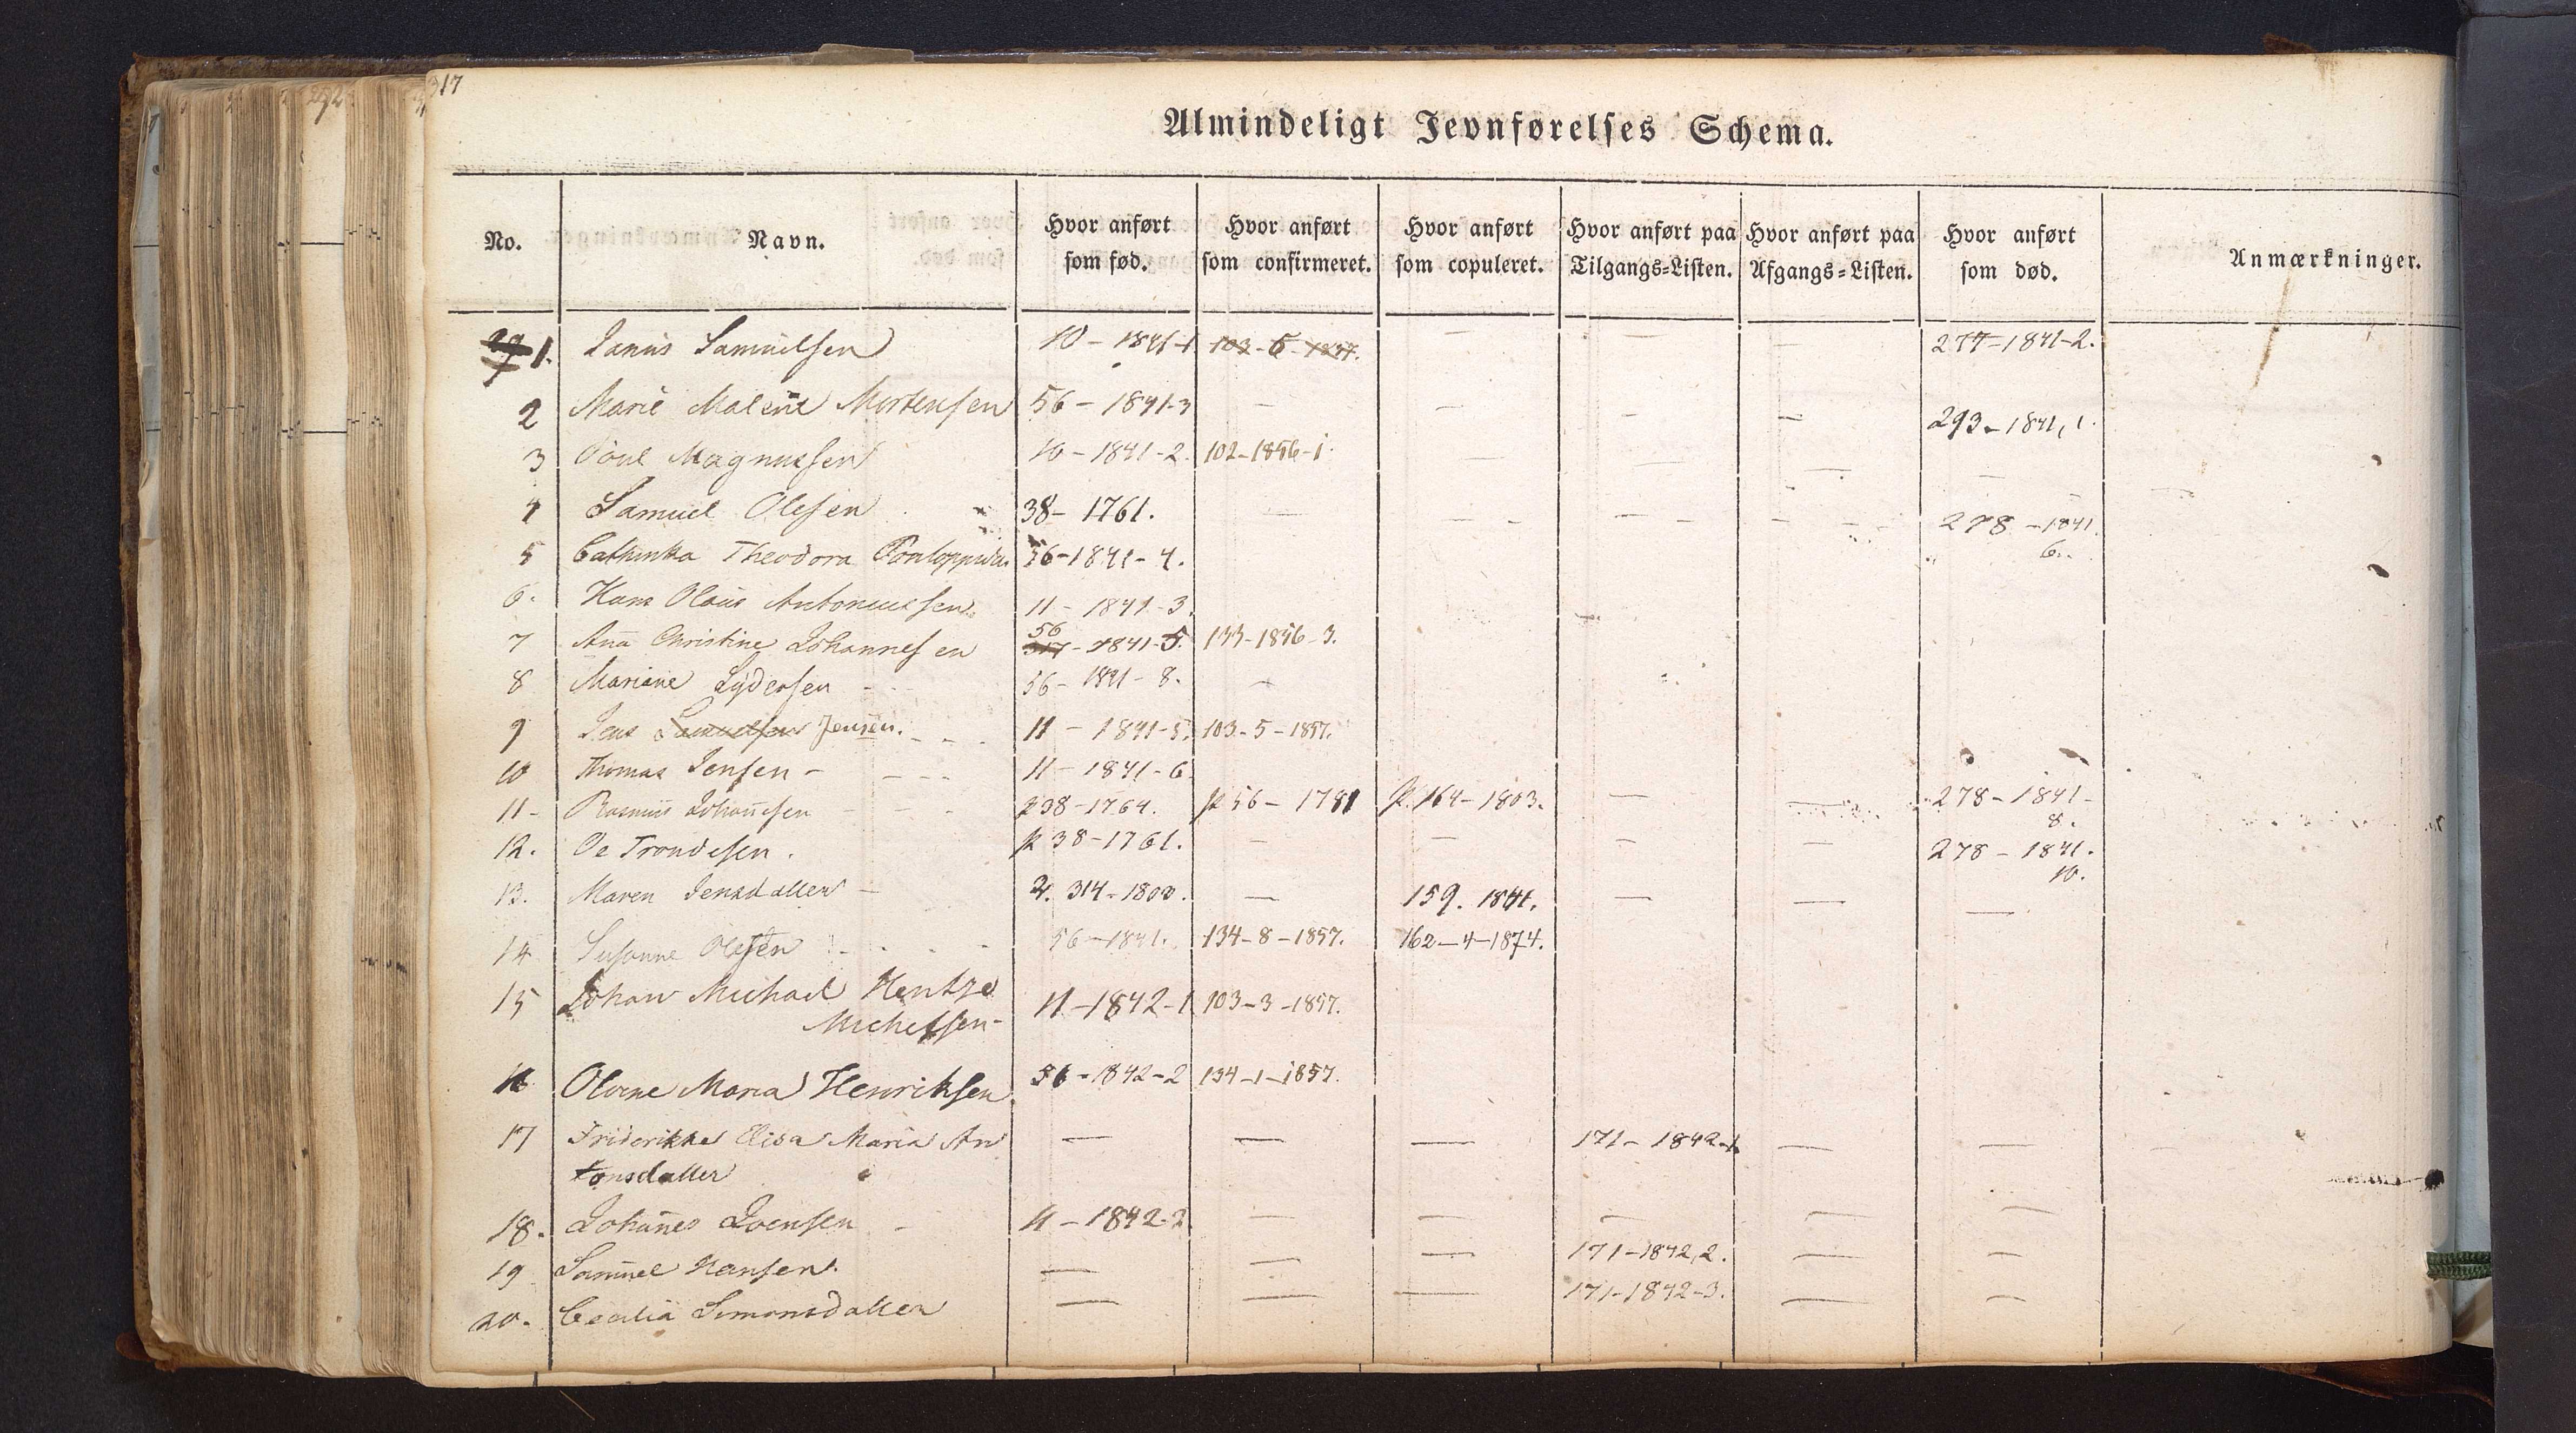 317
Almindeligt Jevnførelses Schema.
No. Navn. Hvor anført som fød. Hvor anført som confirmeret. Hvor anført som copuleret. Hvor anført paa Tilgangs=Listen. Hvor anført paa Afgangs=Listen. Hvor anført som død. Anmærkninger.
1. Janus Samuelsen 10 - 1841-1 103-5-1857. — — — 277-1841-2.
2 Marie Malene Mortensen 56 - 1841-3 — — — — 293-1841, 1.
3 Poul Magnussen 10-1841-2. 102-1856-1. — — — —
4 Samuel Olesen 38- 1761. — — — — 278-1841
6.
5 Cathinka Theodora Pontoppidan 56-1841-4.
6. Hans Olaus Antoniussen 11-1841-3.
56
7 Ana Christine Johannesen 317-1841-5. 133-1856-3.
8 Mariane Lydersen - 56-1841-8. —
9 Jens Samuelsen Jensen. 11 - 1841-5. 103-5-1857.
10 Thomas Jensen - 11-1841-6.
11- Rasmus Johannesen p 38-1764. p 56- 1781 p. 164-1803. — — 278-1841-
8.
12. Ole Trondesen. p 38-1761. — — — — 278-1841.
10.
13. Maren Jensdatter - 2. 314-1800. — 159. 1841. — — —
14 Susanne Olesen 56-1841. 134-8-1857. 162-4-1874.
15 Johan Michael Hentze 11-1842-1 103-3-1857.
Michelsen-
16 Olvine Maria Henriksen 56-1842-2 134-1-1857.
17 Friderikke Elisa Maria An — — — 171-1842-1. — —
tonsdatter
18. Johannes Joensen 11-1842-2 — — — — —
19 Samuel Hansen. — — — 171-1842,2. — —
20. Cecilia Simonsdatter — — — 171-1842-3. — —